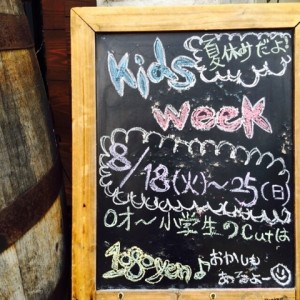 夏休みだよ!
Kids
week
8/18(火)~25(日)
0才~小学生のcutは
1080yen♪
おかしも
あるよー